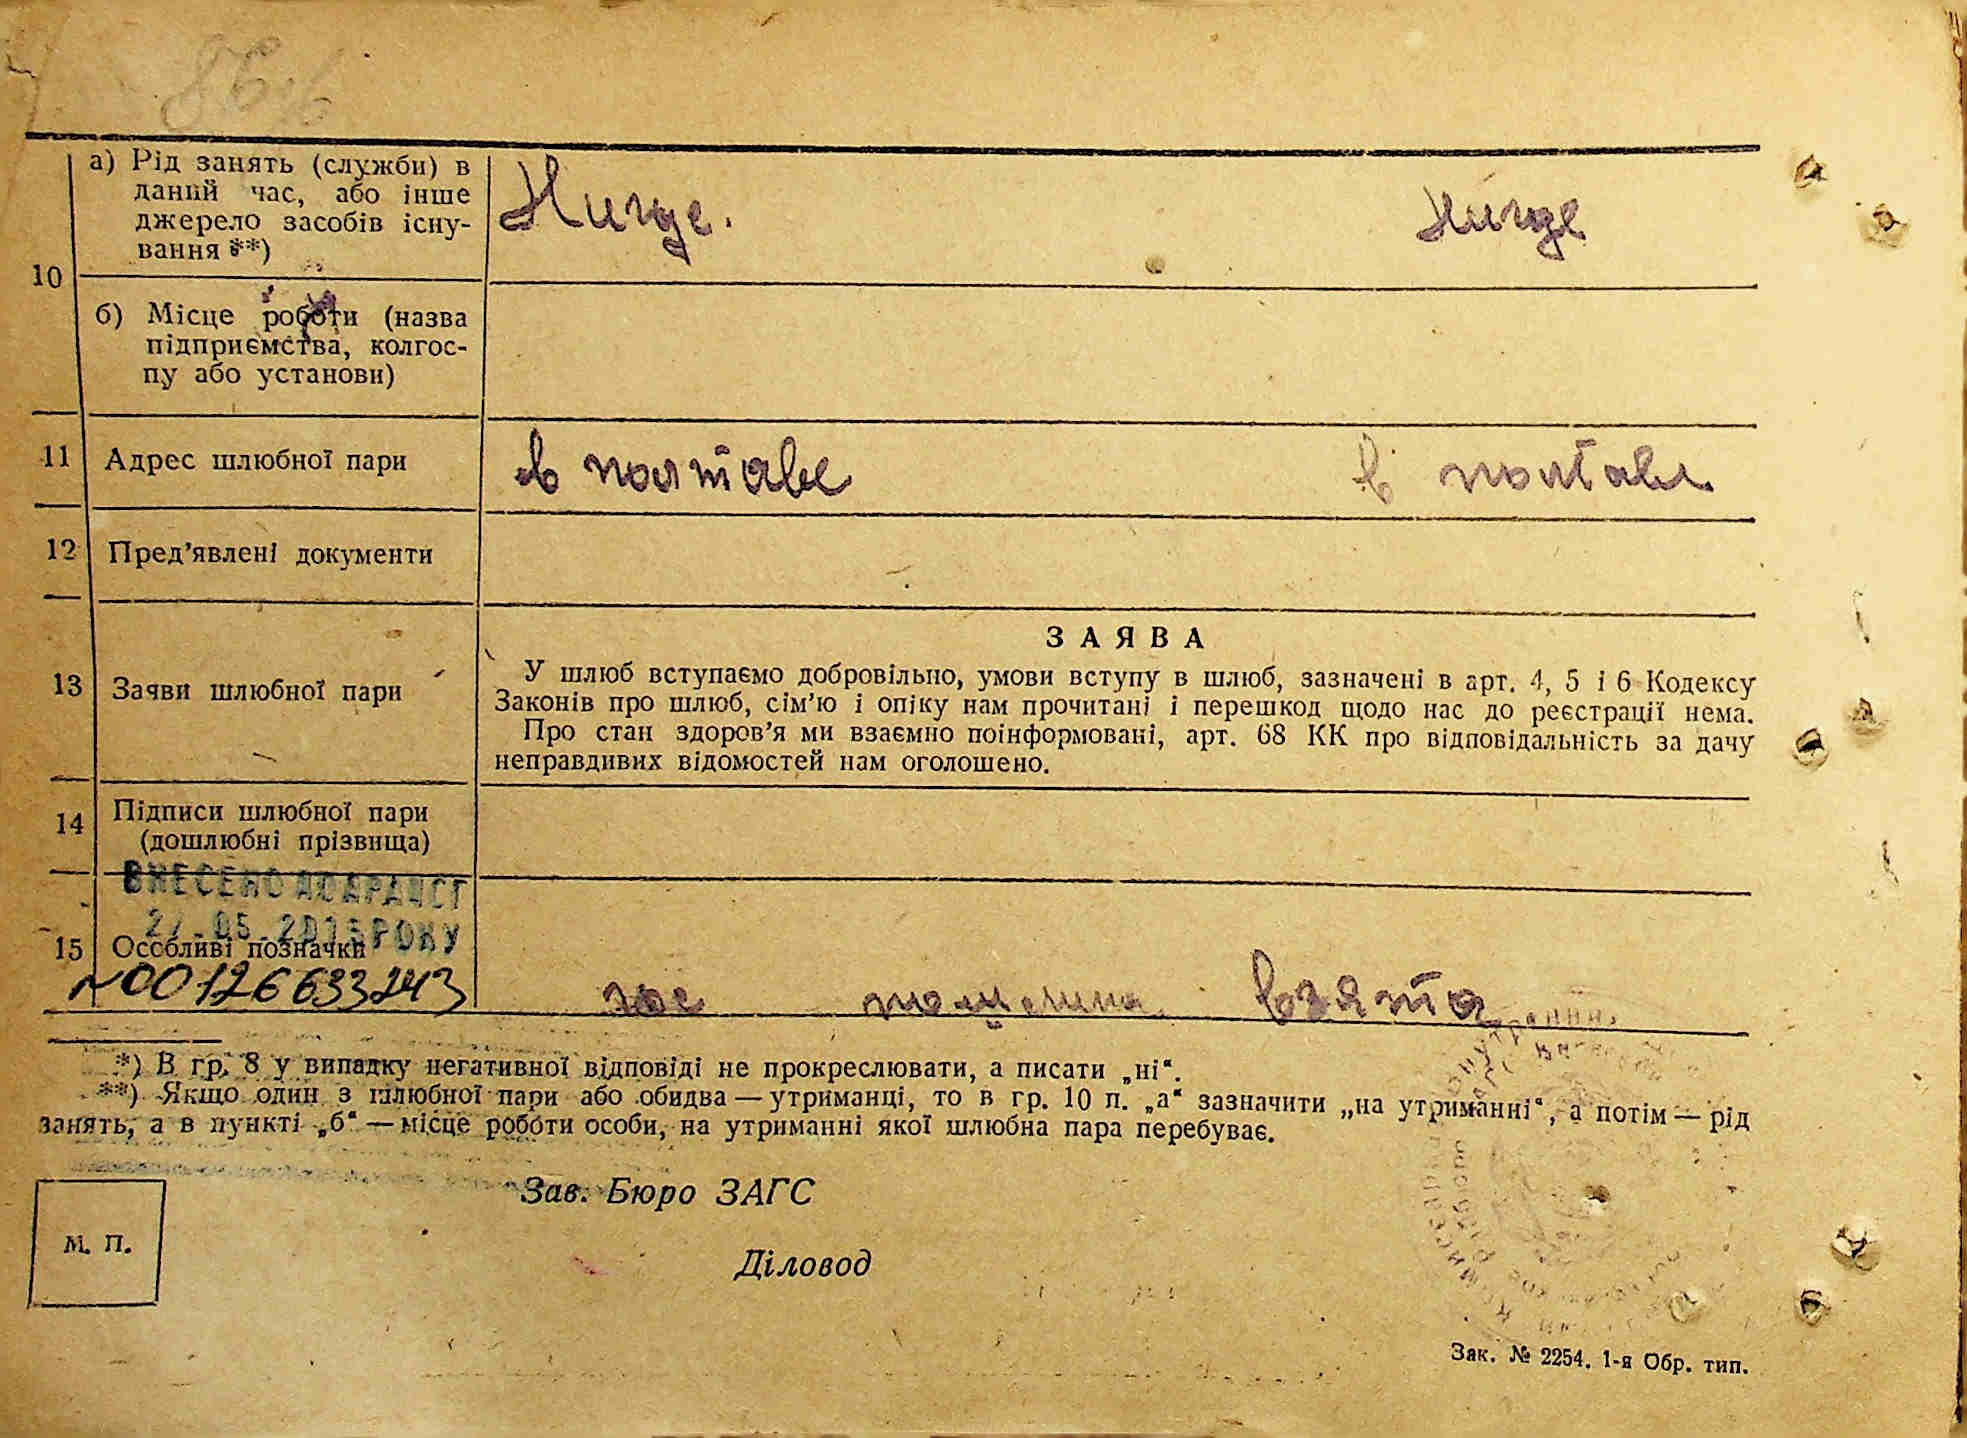 а) Рід занять (служби) в
даний час, або інше
джерело засобів існу-
вання **)
Нигде. нигде
10
б) Місце роботи (назва
підприємства, колгос-
пу або установи)
11 Адрес шлюбної пари в полтаве в полтаве
12 Пред’явлені документи
13 Заяви шлюбної пари
ЗАЯВА
У шлюб вступаємо добровільно, умови вступу в шлюб, зазначені в арт. 4, 5 і 6 Кодексу
Законів про шлюб, сім’ю і опіку нам прочитані і перешкод щодо нас до реєстрації нема.
Про стан здоров’я ми взаємно поінформовані, арт. 68 КК про відповідальність за дачу
неправдивих відомостей нам оголошено.
14 Підписи шлюбної пари
(дошлюбні прізвища)
ВНЕСЕНО ДО ДРАЦСГ
27.05.2015 РОКУ
15 Особливі позначки
№00126633243 взята
*) В гр. 8 у випадку негативної відповіді не прокреслювати, а писати „ні“.
**) Якщо один з шлюбної пари або обидва — утриманці, то в гр. 10 п. „а“ зазначити „на утриманні“, а потім — рід
занять, а в пункті „б“ — місце роботи особи, на утриманні якої шлюбна пара перебуває.
Зав. Бюро ЗАГС
М. П.
Діловод
Зак. № 2254. 1-я Обр. тип.